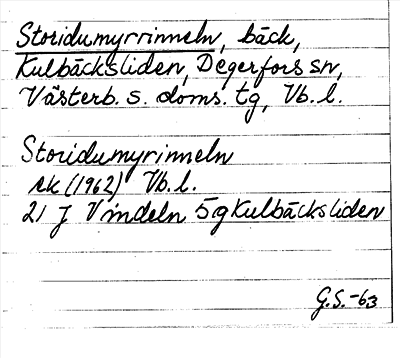 Storidumyrrinneln, bäck,
Kulbäcksliden, Degerfors sn,
Västerb. s. doms. tg, Vb. l.
Storidumyrinneln
ek (1962) Vb. l.
21 J Vindeln 5g Kulbäcksliden
G.S.-63